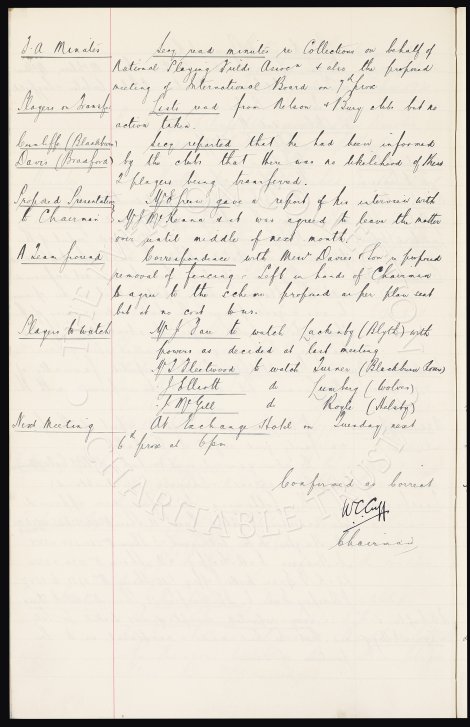 F.A Minutes Secy read minutes re Collections on behalf of
National Playing Fields Assocn & also the proposed
meeting of International Board on 9th prox
Players on Transfer Lists read from Nelson & Bury clubs but no
action taken.
Cunliffe (Blackburn) Secy reported that he had been informed
Davis (Bradford) by the clubs that there was no likelihood of these
2 players being transferred.
Proposed Presentation gave a report of his interview with
to Chairman Mr J McKenna & it was agreed to leave the matter
over until middle of next month.
A Team Ground Correspondence with Messrs Davies & Son re proposed
removal of fencing. Left in hands of Chairman
to agree to the scheme proposed as per plan sent
but at no cost to us.
Players to watch Mr J to watch Lackenby (Blyth) with
powers as decided at last meeting
Mr T Fleetwood to watch Turner (Blackburn Rovers)
J Elliott do Lumberg (Wolves)
J McGill do Royle (Helsby)
Next Meeting At Exchange Hotel on Tuesday next
6th prox at 6pm
Confirmed as Correct
W.C. Cuff
Chairman
CHARITABLE TRUST